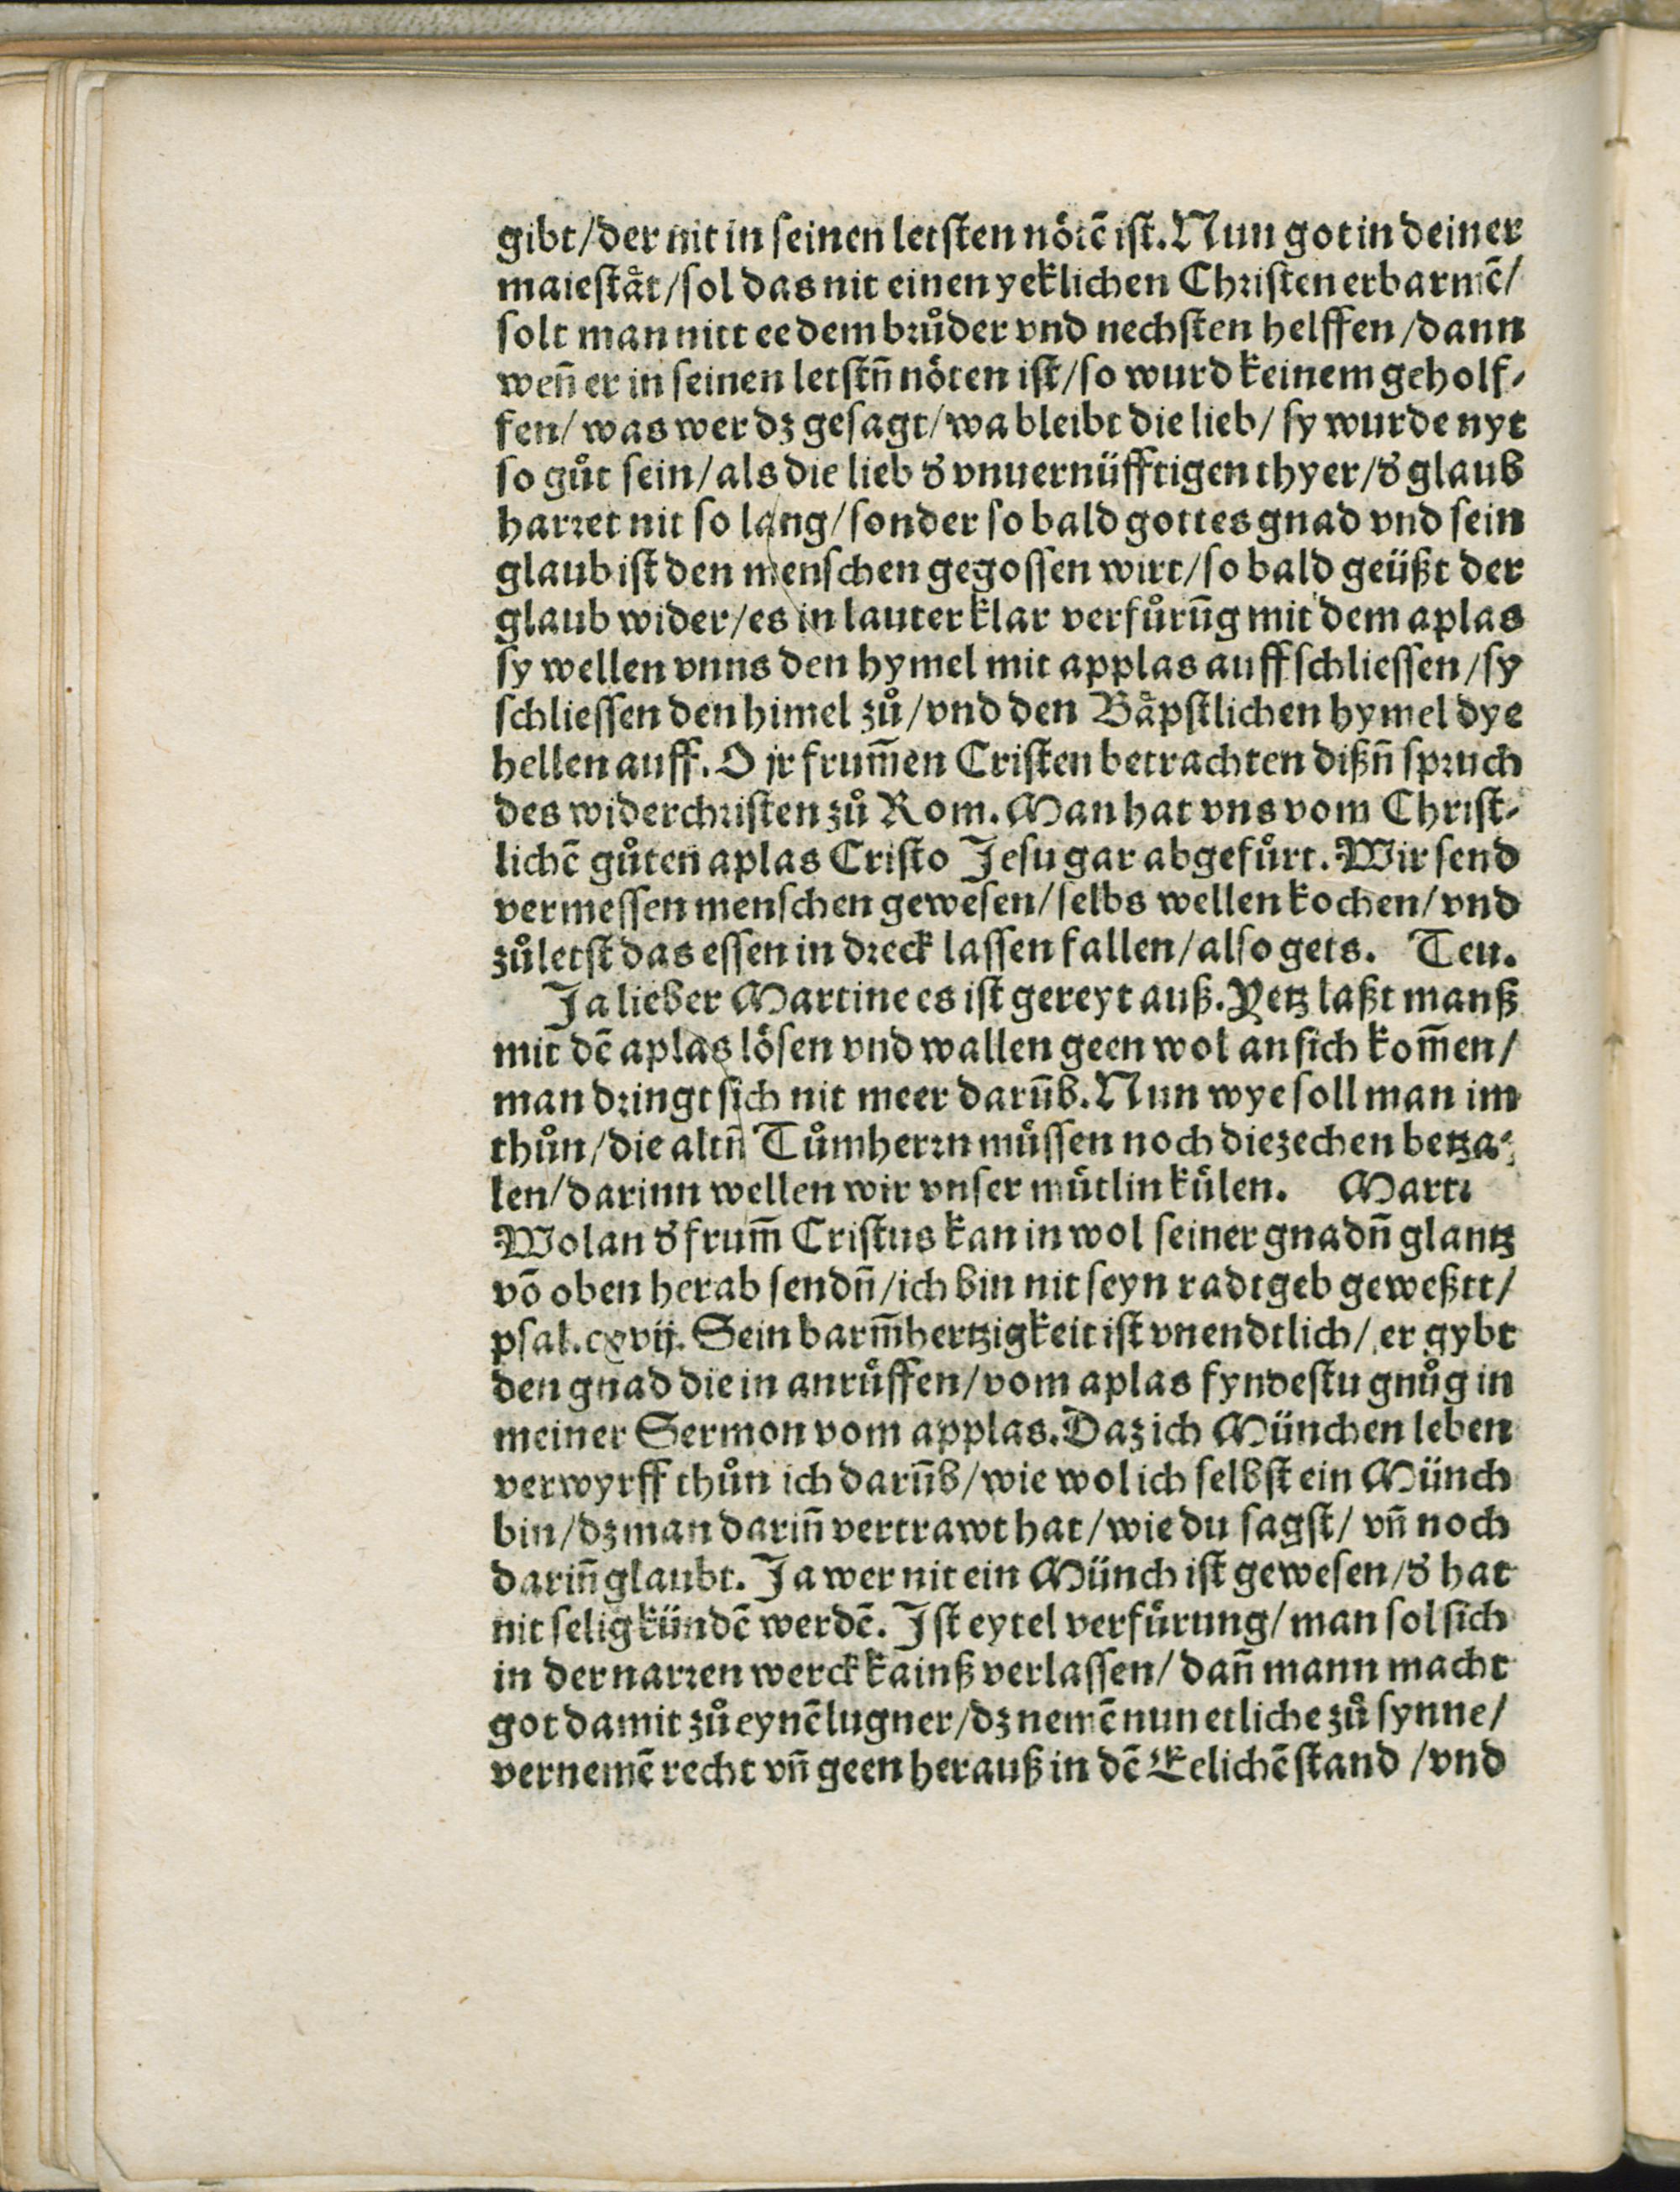 gibt/der nit in seinen letsten nötē ist. Nun got in deiner
maieståt/sol das nit einen yeklichen Christen erbarmē/
solt man nitt ee dem brůder vnd nechsten helffen/dann
weñ er in seinen letstñ nöten ist/so wurd keinem geholf-
fen/was wer dz gesagt/wa bleibt die lieb/sy wurde nyt
so gůt sein/als die lieb d' vnuernüfftigen thyer/d' glaub
harret nit so lang/sonder so bald gottes gnad vnd sein
glaub ist den menschen gegossen wirt/so bald geüßt der
glaub wider/es in lauter klar verfůrūg mit dem aplas
sy wellen vnns den hymel mit applas auffschliessen/sy
schliessen den himel zů/vnd den Båpstlichen hymel dye
hellen auff. O jr frum̄en Cristen betrachten dißñ spruch
des widerchristen zů Rom. Man hat vns vom Christ-
lichē gůten aplas Cristo Jesu gar abgefůrt. Wir send
vermessen menschen gewesen/selbs wellen kochen/vnd
zůletst das essen in dreck lassen fallen/also gets. Teu.
Ja lieber Martine es ist gereyt auß. Yetz laßt manß
mit dē aplas lösen vnd wallen geen wol an sich kom̄en/
man dringt sich nit meer darūb. Nun wye soll man im
thůn/die altñ Tůmherrn můssen noch die zechen betza-
len/darinn wellen wir vnser můtlin kůlen. Marti
Wolan d' frum̄ Cristus kan in wol seiner gnadñ glantz
vō oben herab sendñ/ich bin nit seyn radtgeb geweßtt/
psal. cxvij. Sein barm̄hertzigkeit ist vnendtlich/er gybt
den gnad die in anrůffen/vom aplas fyndestu gnůg in
meiner Sermon vom applas. Daz ich München leben
verwyrff thůn ich darūb/wie wol ich selbst ein Münch
bin/dz man dariñ vertrawt hat/wie du sagst/vñ noch
dariñ glaubt. Ja wer nit ein Münch ist gewesen/d' hat
nit selig kündē werdē. Ist eytel verfůrung/man sol sich
in der narren werck kainß verlassen/dañ mann macht
got damit zů eynē lugner/dz nemē nun etliche zů synne/
vernemē recht vñ geen herauß in dē Eelichē stand/vnd